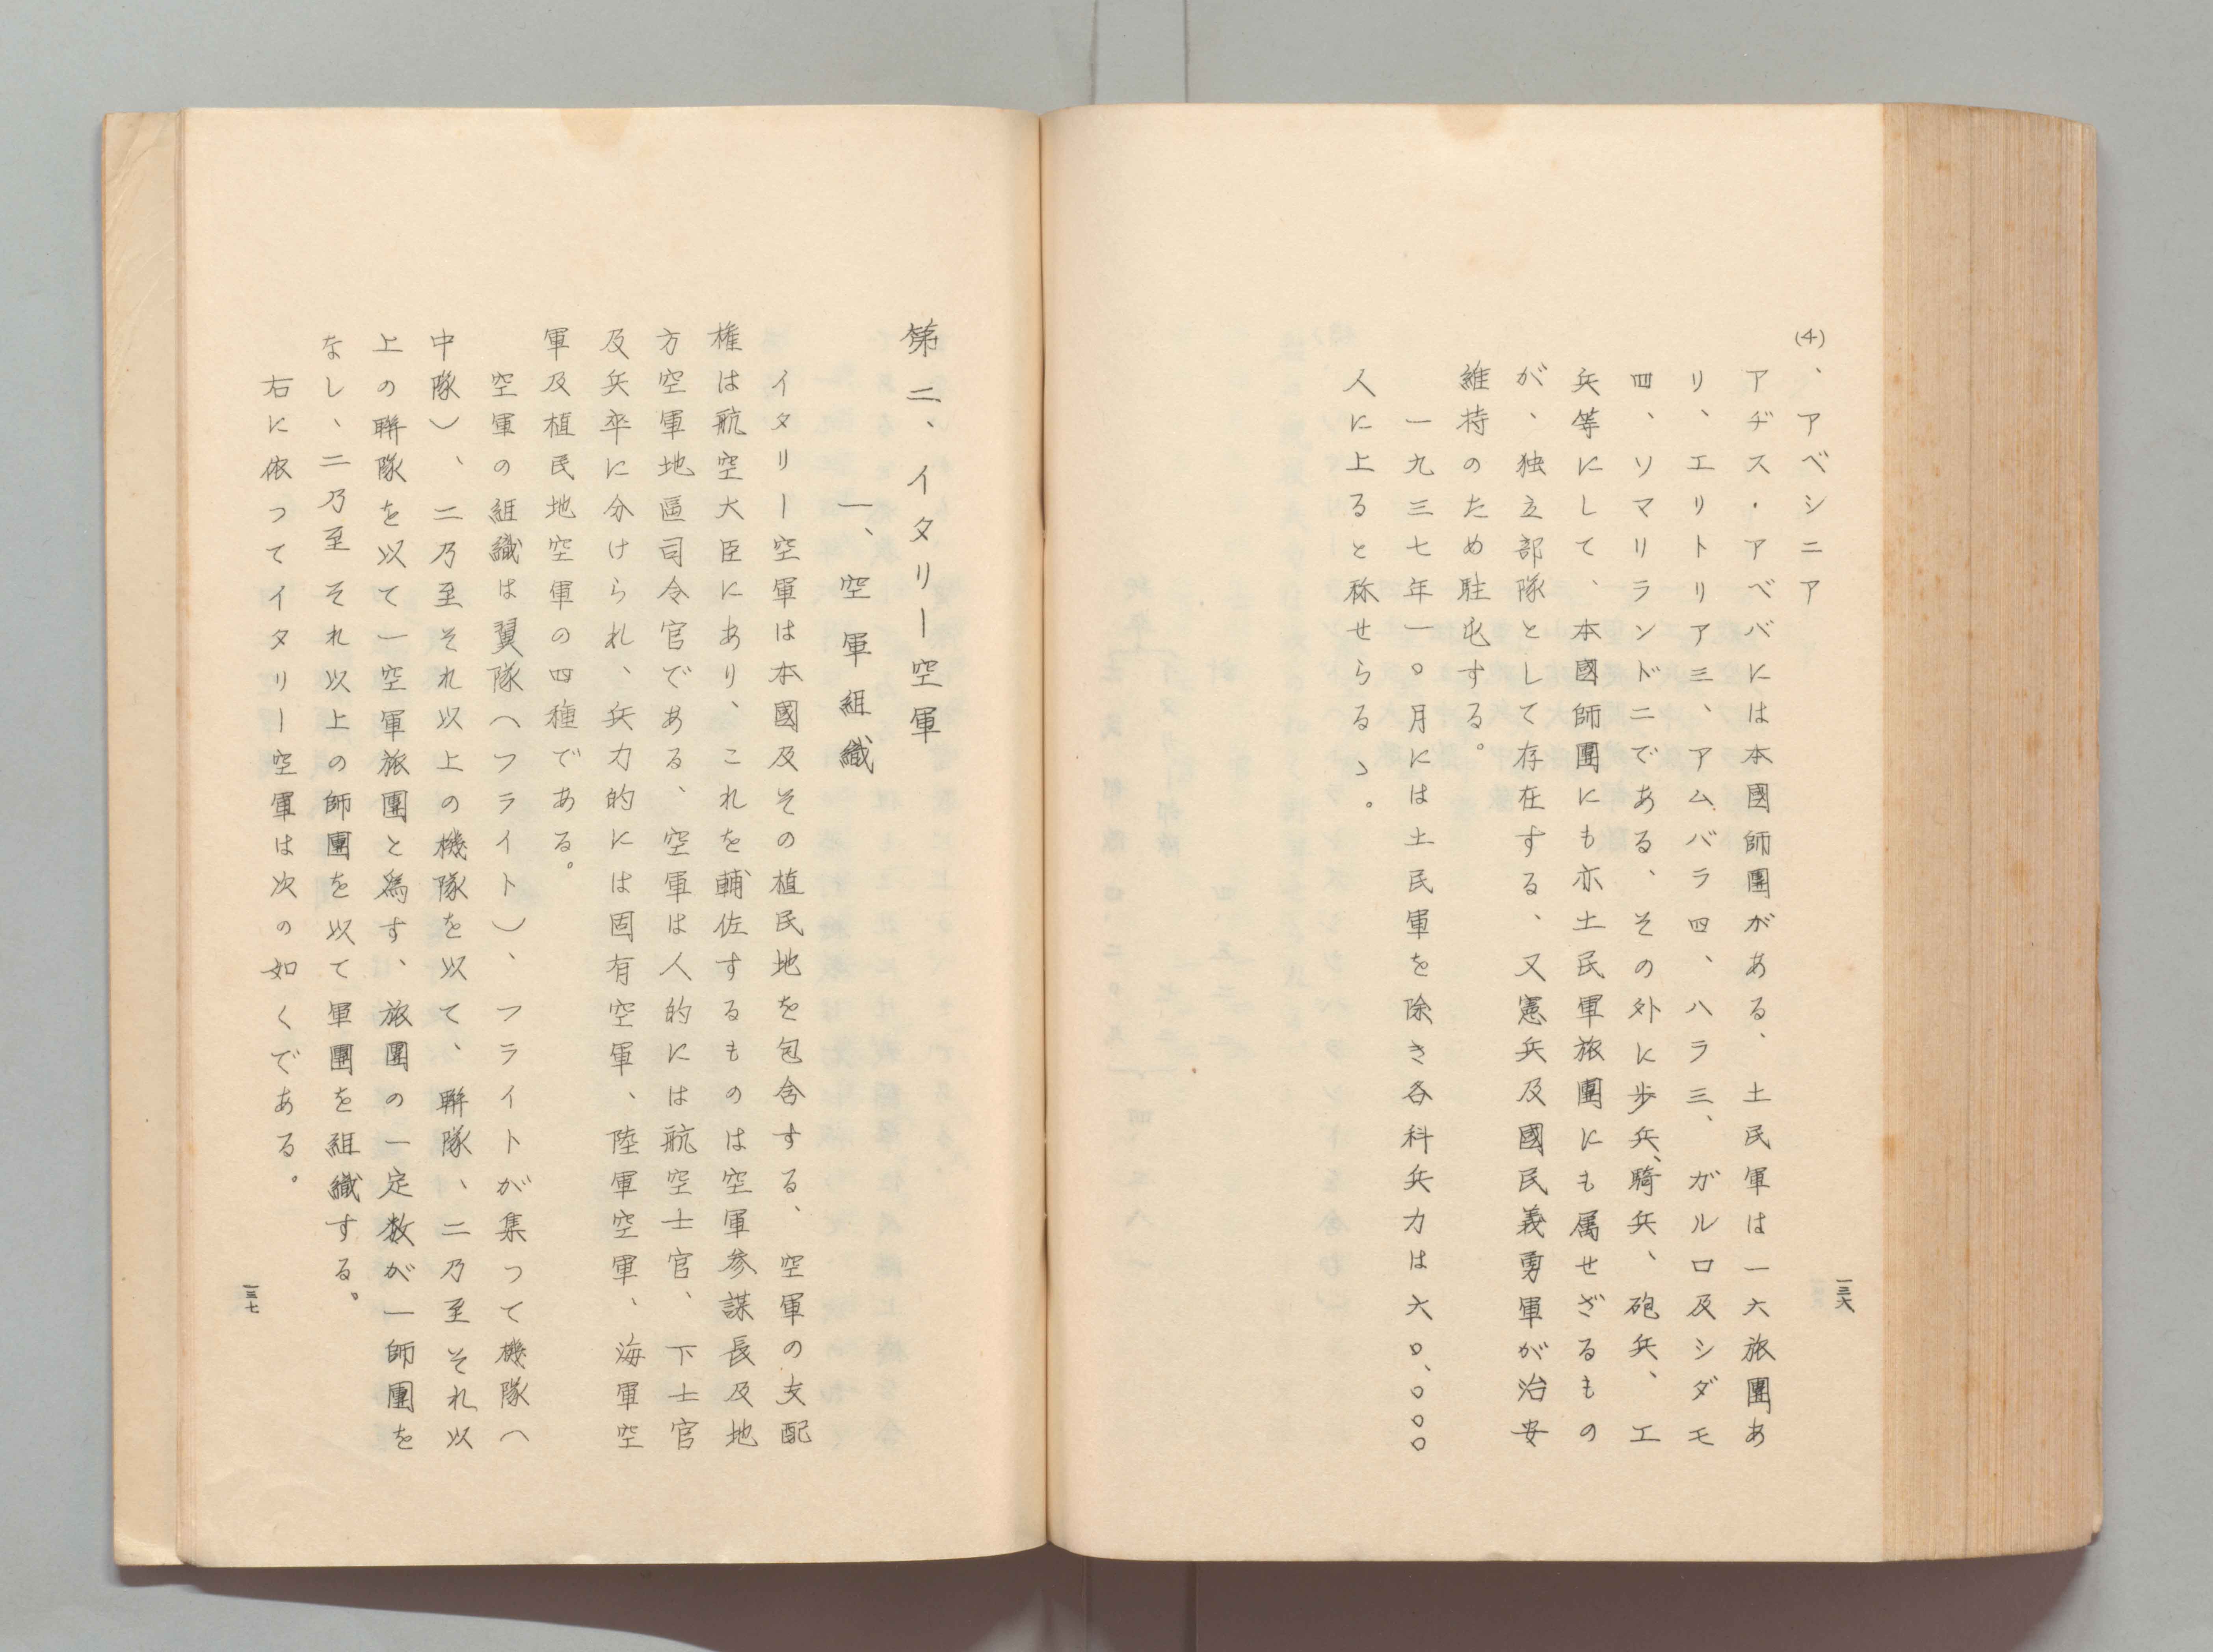 (4)、アベシニア
アヂス・アベバには本國師團がある、土民軍は一六旅團あ
リ、エリトリア三、アムバラ四、ハラ三、ガルロ及シダモ
四、ソマリランド二である、その外に歩兵、騎兵、砲兵、工
兵等にして、本國師團にも亦土民軍旅團にも属せざるもの
が、独立部隊として存在する、又憲兵及國民義勇軍が治安
維持のため駐屯する。
一九三七年一〇月には土民軍を除き各科兵力は六〇、〇〇〇
人に上ると称せらるゝ。
一三六
第二、イタリー空軍
一、空軍組織
イタリー空軍は本國及その植民地を包含する、空軍の支配
権は航空大臣にあり、これを輔佐するものは空軍参謀長及地
方空軍地區司令官である、空軍は人的には航空士官、下士官
及兵卒に分けられ、兵力的には固有空軍、陸軍空軍、海軍空
軍及植民地空軍の四種である。
空軍の組織は翼隊(フライト)、フライトが集つて機隊(
中隊)、二乃至それ以上の機隊を以て、聯隊、二乃至それ以
上の聯隊を以て一空軍旅團と為す、旅團の一定数が一師團を
なし、二乃至それ以上の師團を以て軍團を組織する。
右に依つてイタリー空軍は次の如くである。
一三七